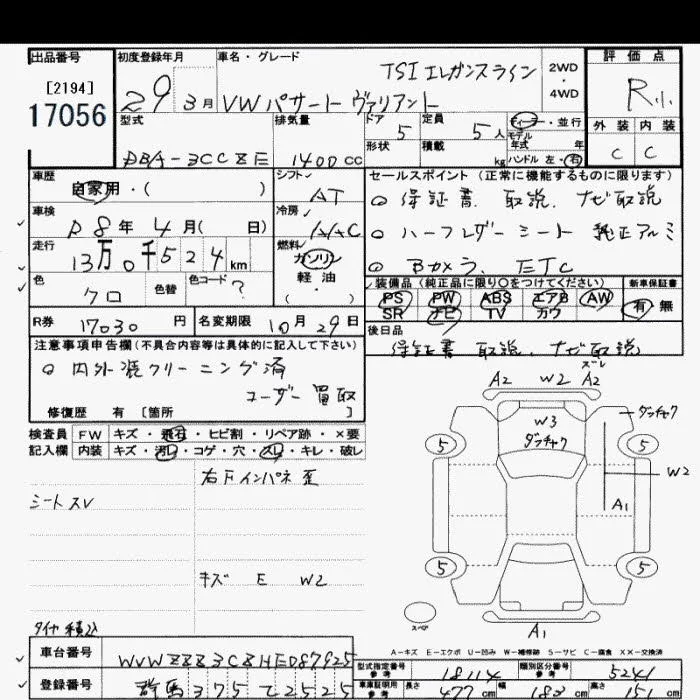 出品番号 初度登録年月 車名・グレード 評価点
[2194]
17056
29 3月 VW パサート ヴァリアント TSI エレガンスライン 2WD・4WD R小
型式 排気量 ドア 5 定員 5人 ディーラー・並行 外装 内装
モデル年式 年
DBA-3CCZE 1400cc 形状 積載 kg ハンドル 左・右 C C
車歴 シフト セールスポイント (正常に機能するものに限ります)
自家用・( ) AT ○ 保証書 取説、ナビ取説
車検 冷房
R8年 4月( 日) AAC ○ ハーフレザーシート 純正アルミ
走行 燃料
13万0千524km ガソリン ○ Bカメラ、ETC
色 色替 色コード 軽油・( ) 装備品 (純正品に限り○をつけてください) 新車保証書
クロ ? PS PW ABS エアB AW 有・無
SR ナビ TV カワ
R券 17030円 名変期限 10月29日 後日品
注意事項申告欄(不具合内容等は具体的に記入して下さい) 保証書 取説、ナビ取説
○ 内外装クリーニング済
ユーザー買取
修復歴 有 [箇所 ]
検査員 FW キズ・飛石・ヒビ割・リペア跡・×要
記入欄 内装 キズ・汚レ・コゲ・穴・スレ・キレ・破レ
右Fインパネ歪
シートスレ
キズ E W2
タイヤ積込
A2 W2 A2 ズレ
W3
ダッチャク
ダッチャク
5 5
W2
A1
5 5
スペア
A1
A-キズ E-エクボ U-凹み W-補修跡 S-サビ C-腐食 XX-交換済
車台番号 WVWZZZ3CZHE087925 型式指定番号 参考 18114 類別区分番号 参考 5241
登録番号 群馬 375 て2525 車庫証明用 参考 長さ 477cm 幅 183cm 高さ 151cm